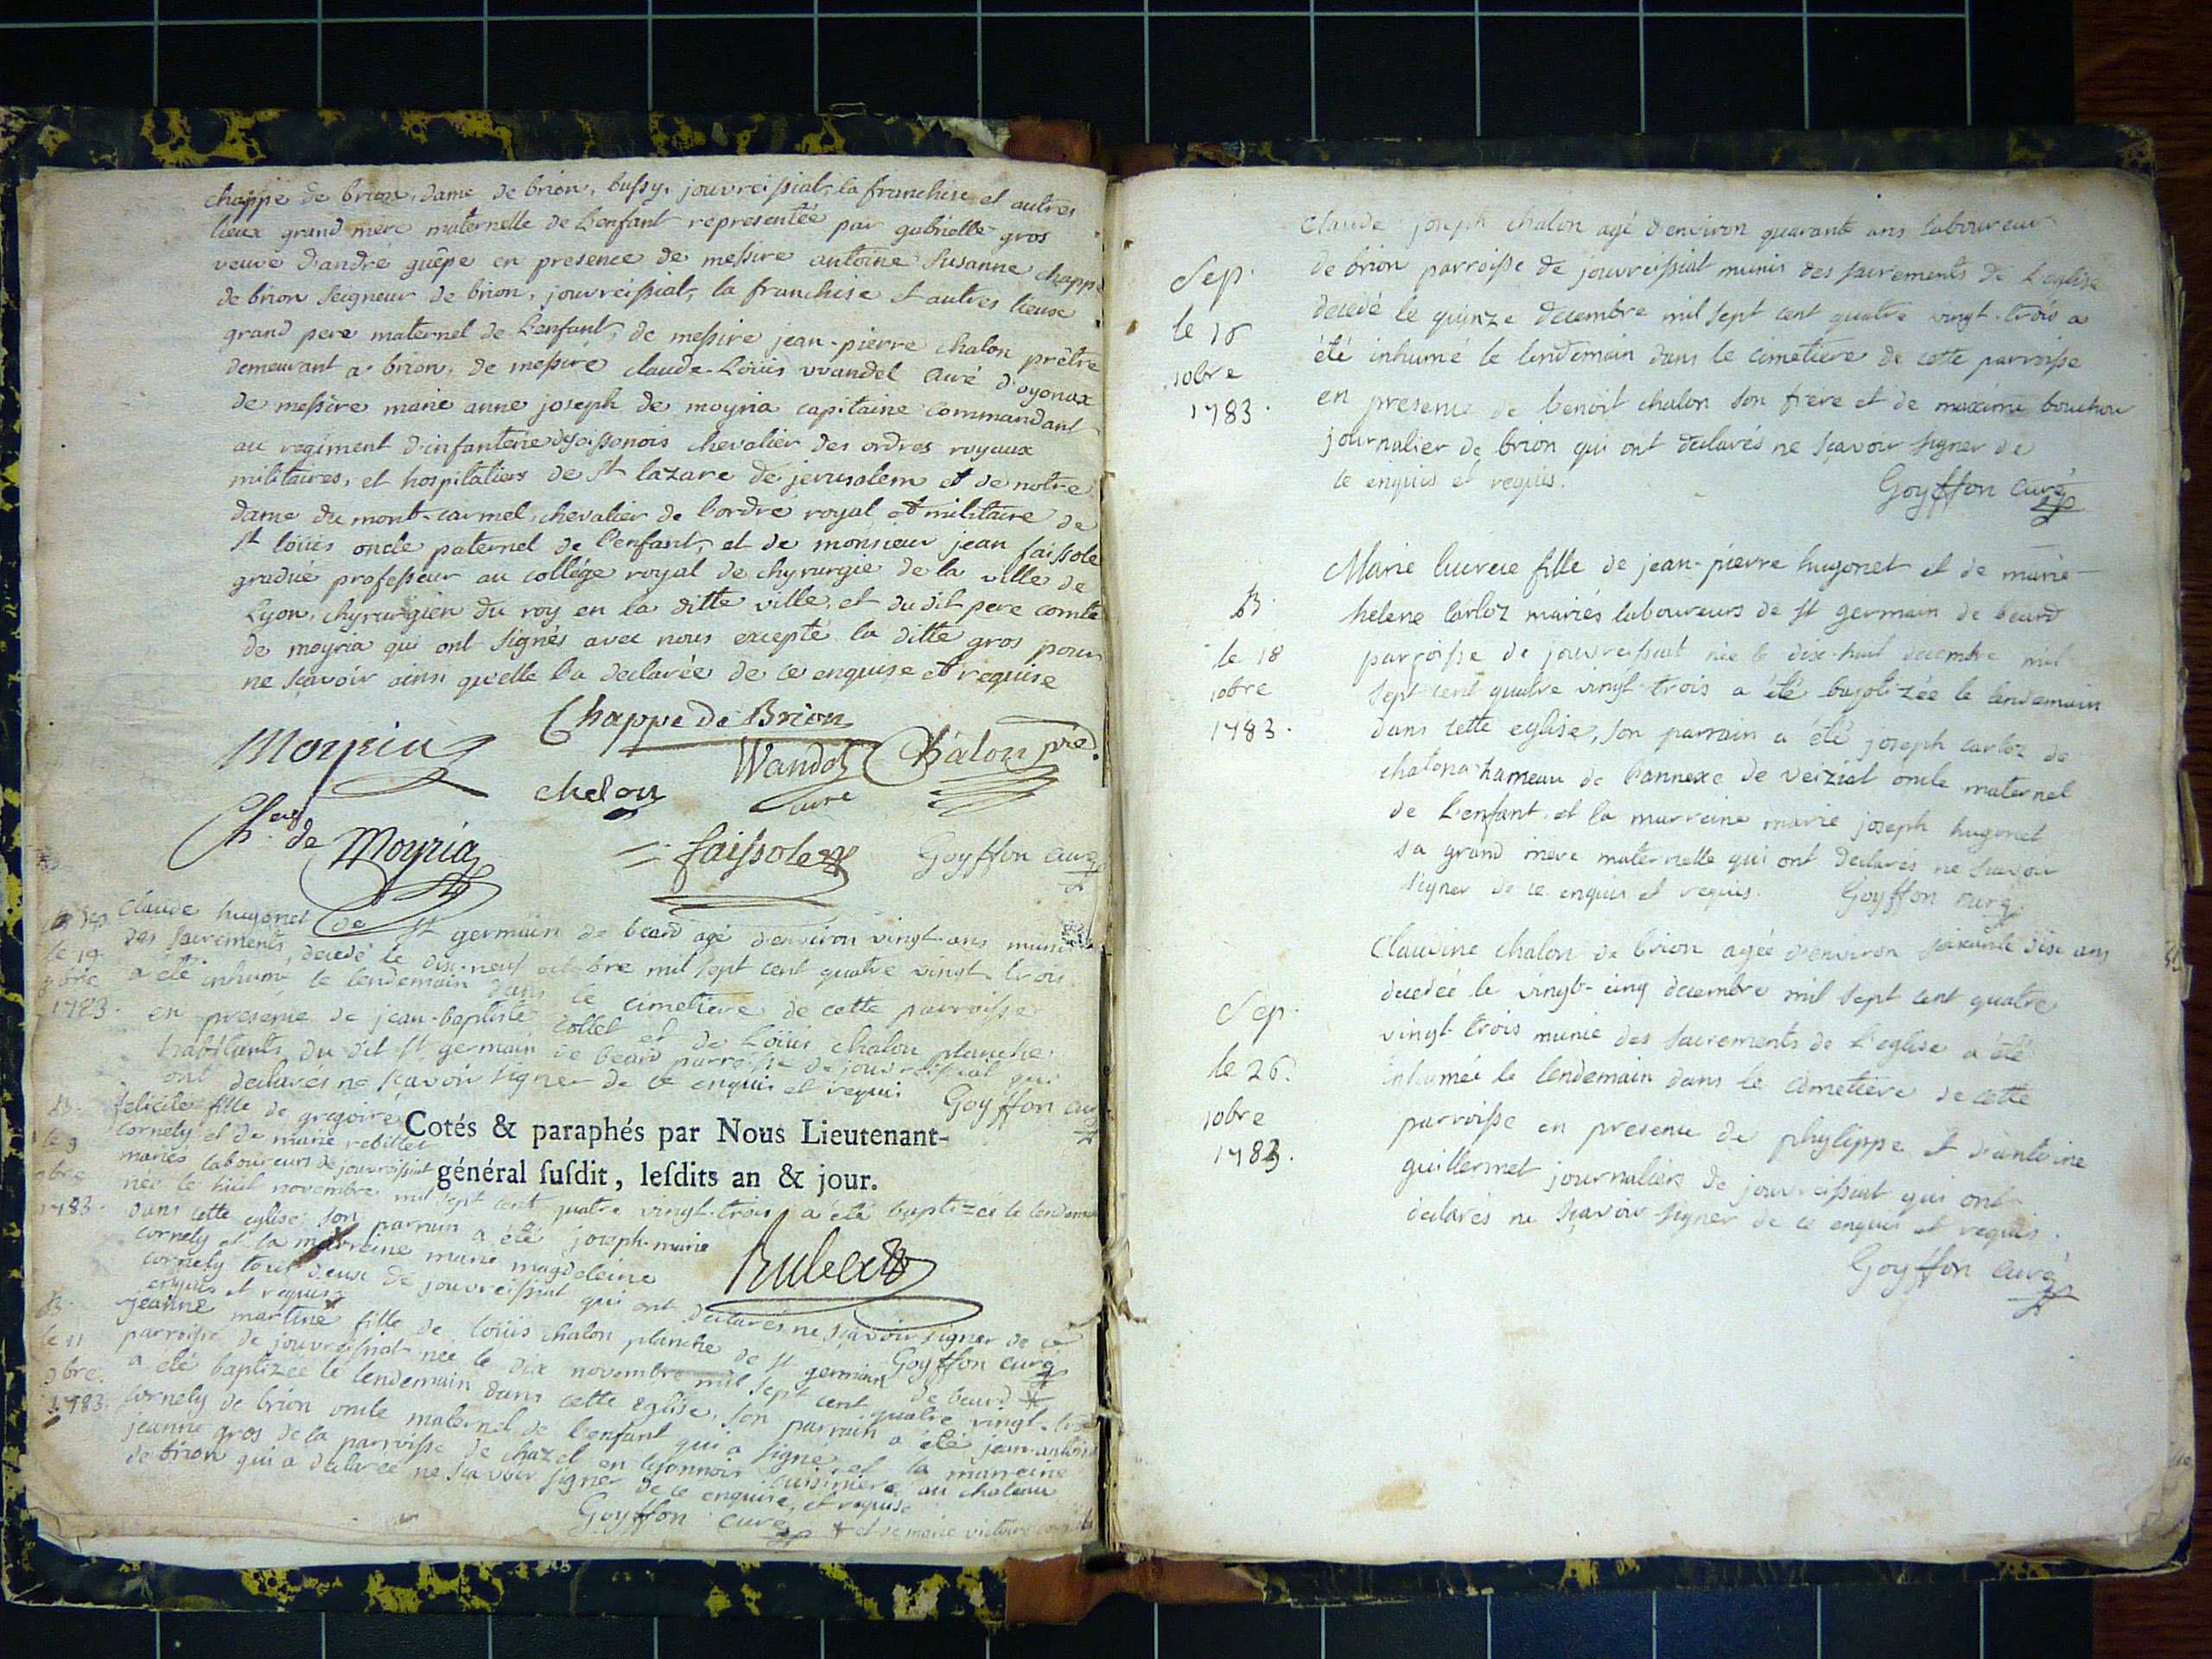 chappe de brion, dame de brion, bussy, jouvreissiat, la franchise et autres
lieux grand mere maternelle de l'enfant representée par gabrielle gros
veuve d'andré guêpe en presence de messire antoine susanne chappe
de brion seigneur de brion, jouvreissiat, la franchise et autres lieux
grand pere maternel de l'enfant, de messire jean-pierre chalon prêtre
demeurant a brion, de messire claude-loüis wandel curé d'oyonax
de messire marie anne joseph de moyria capitaine commandant
au regiment d'infanterie de soissonois chevalier des ordres royaux
militaires, et hospitaliers de st lazare de jerusalem et de notre
dame du mont-carmel, chevalier de l'ordre royal et militaire de
st loüis oncle paternel de l'enfant, et de monsieur jean faissole
gradué professeur au collége royal de chyrurgie de la ville de
Lyon, chyrurgien du roy en la ditte ville, et du dit pere comte
de moyria qui ont signés avec nous excepté la ditte gros pour
ne sçavoir ainsi qu'elle l'a declarée de ce enquise et requise
Moyria Chappe de Brion
chelon Wandel curé Chalon
de Moyria faissole Goyffon curé
Sep
le 19
1783.
Claude hugonet de st germain de beard agé d'environ vingt ans muni
des sacrements, decedé le dix-neuf octobre mil sept cent quatre vingt trois
a été inhumé le lendemain dans le cimetiere de cette parroisse
en presence de jean-baptiste collet et de loüis chalon planche
habitants du dit st germain de beard parroisse de jouvreissiat qui
ont declarés ne sçavoir signer de ce enquis et requis Goyffon curé
B.
le 9
9bre
1783.
felicité fille de gregoire
cornely et de marie rebillet
mariés laboureurs de jouvreissiat
Cotés & paraphés par Nous Lieutenant-
général susdit, lesdits an & jour.
née le huit novembre mil sept cent quatre vingt-trois a été baptizée le lendemain
dans cette eglise, son parrain a été joseph-marie
cornely et la marreine marie magdeleine
cornely tout deux de jouvreissiat qui ont declarés ne sçavoir signer de ce
enquis et requis Goyffon curé
B.
le 11
9bre.
1783.
jeanne martine fille de loüis chalon planche de st germain de beard
parroisse de jouvreissiat née le dix novembre mil sept cent quatre vingt-trois
a été baptizée le lendemain dans cette eglise, son parrain a été jean-antoine
cornely de brion oncle maternel de l'enfant qui a signé, et la marreine
jeanne gros de la parroisse de chazel en lyonnois cuisiniere au chateau
de brion qui a declarée ne sçavoir signer de ce enquise, et requise
Goyffon curé + et de marie victoire
Sep.
le 16
10bre
1783.
Claude joseph chalon agé d'environ quarante ans laboureur
de brion parroisse de jouvreissiat munis des sacrements de l'eglise
decedé le quinze decembre mil sept cent quatre vingt-trois a
été inhumé le lendemain dans le cimetiere de cette parroisse
en presence de benoit chalon son frere et de maxime bouchon
journalier de brion qui ont declarés ne sçavoir signer de
ce enquis et requis. Goyffon curé
B.
le 18
10bre
1783.
Marie lucrece fille de jean-pierre hugonet et de marie-
helene carloz mariés laboureurs de st germain de beard
parroisse de jouvreissiat née le dix-huit decembre mil
sept cent quatre vingt-trois a été baptizée le lendemain
dans cette eglise, son parrain a été joseph carloz de
chatona hameau de l'annexe de veiziat oncle maternel
de l'enfant, et la marreine marie joseph hugonet
sa grand mere maternelle qui ont declarés ne sçavoir
signer de ce enquis et requis. Goyffon curé
Sep.
le 26.
10bre
1783.
Claudine chalon de brion agée d'environ soixante dix ans
decedée le vingt-cinq decembre mil sept cent quatre
vingt-trois munie des sacrements de l'eglise a été
inhumée le lendemain dans le cimetiere de cette
parroisse en presence de phylippe et d'antoine
guillermet journaliers de jouvreissiat qui ont
declarés ne sçavoir signer de ce enquis et requis.
Goyffon curé